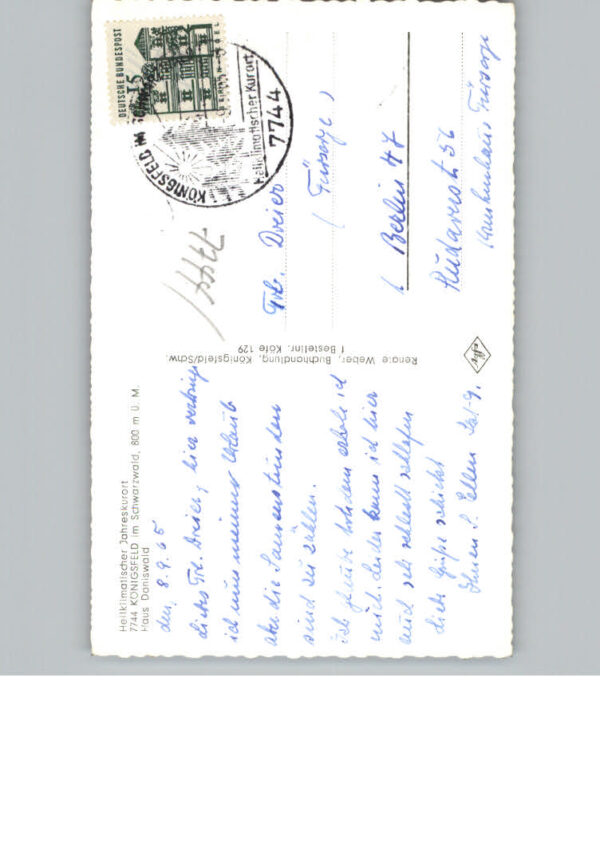 Heilklimatischer Jahreskurort
7744 KÖNIGSFELD im Schwarzwald, 800 m ü. M.
Haus Doniswald
den, 8.9.65
Liebes Frl. Dreier, hier verbringe
ich nun meinen Urlaub
aber die Sonnenstunden
sind zu zählen.
Ich glaube trotzdem erhole ich
mich. Leider kann ich hier
auch sehr schlecht schlafen
Liebe Grüße schickt
Ihnen S. Ellen
Renate Weber, Buchhandlung, Königsfeld/Schw.
f Bestellnr. Köfe 129
DEUTSCHE BUNDESPOST
15
KÖNIGSFELD IM
Heilklimatischer Kurort
7744
Frl. Dreier
(Fürsorge)
1 Berlin 47
Rudowerstr 56
Krankenhaus Fürsorge